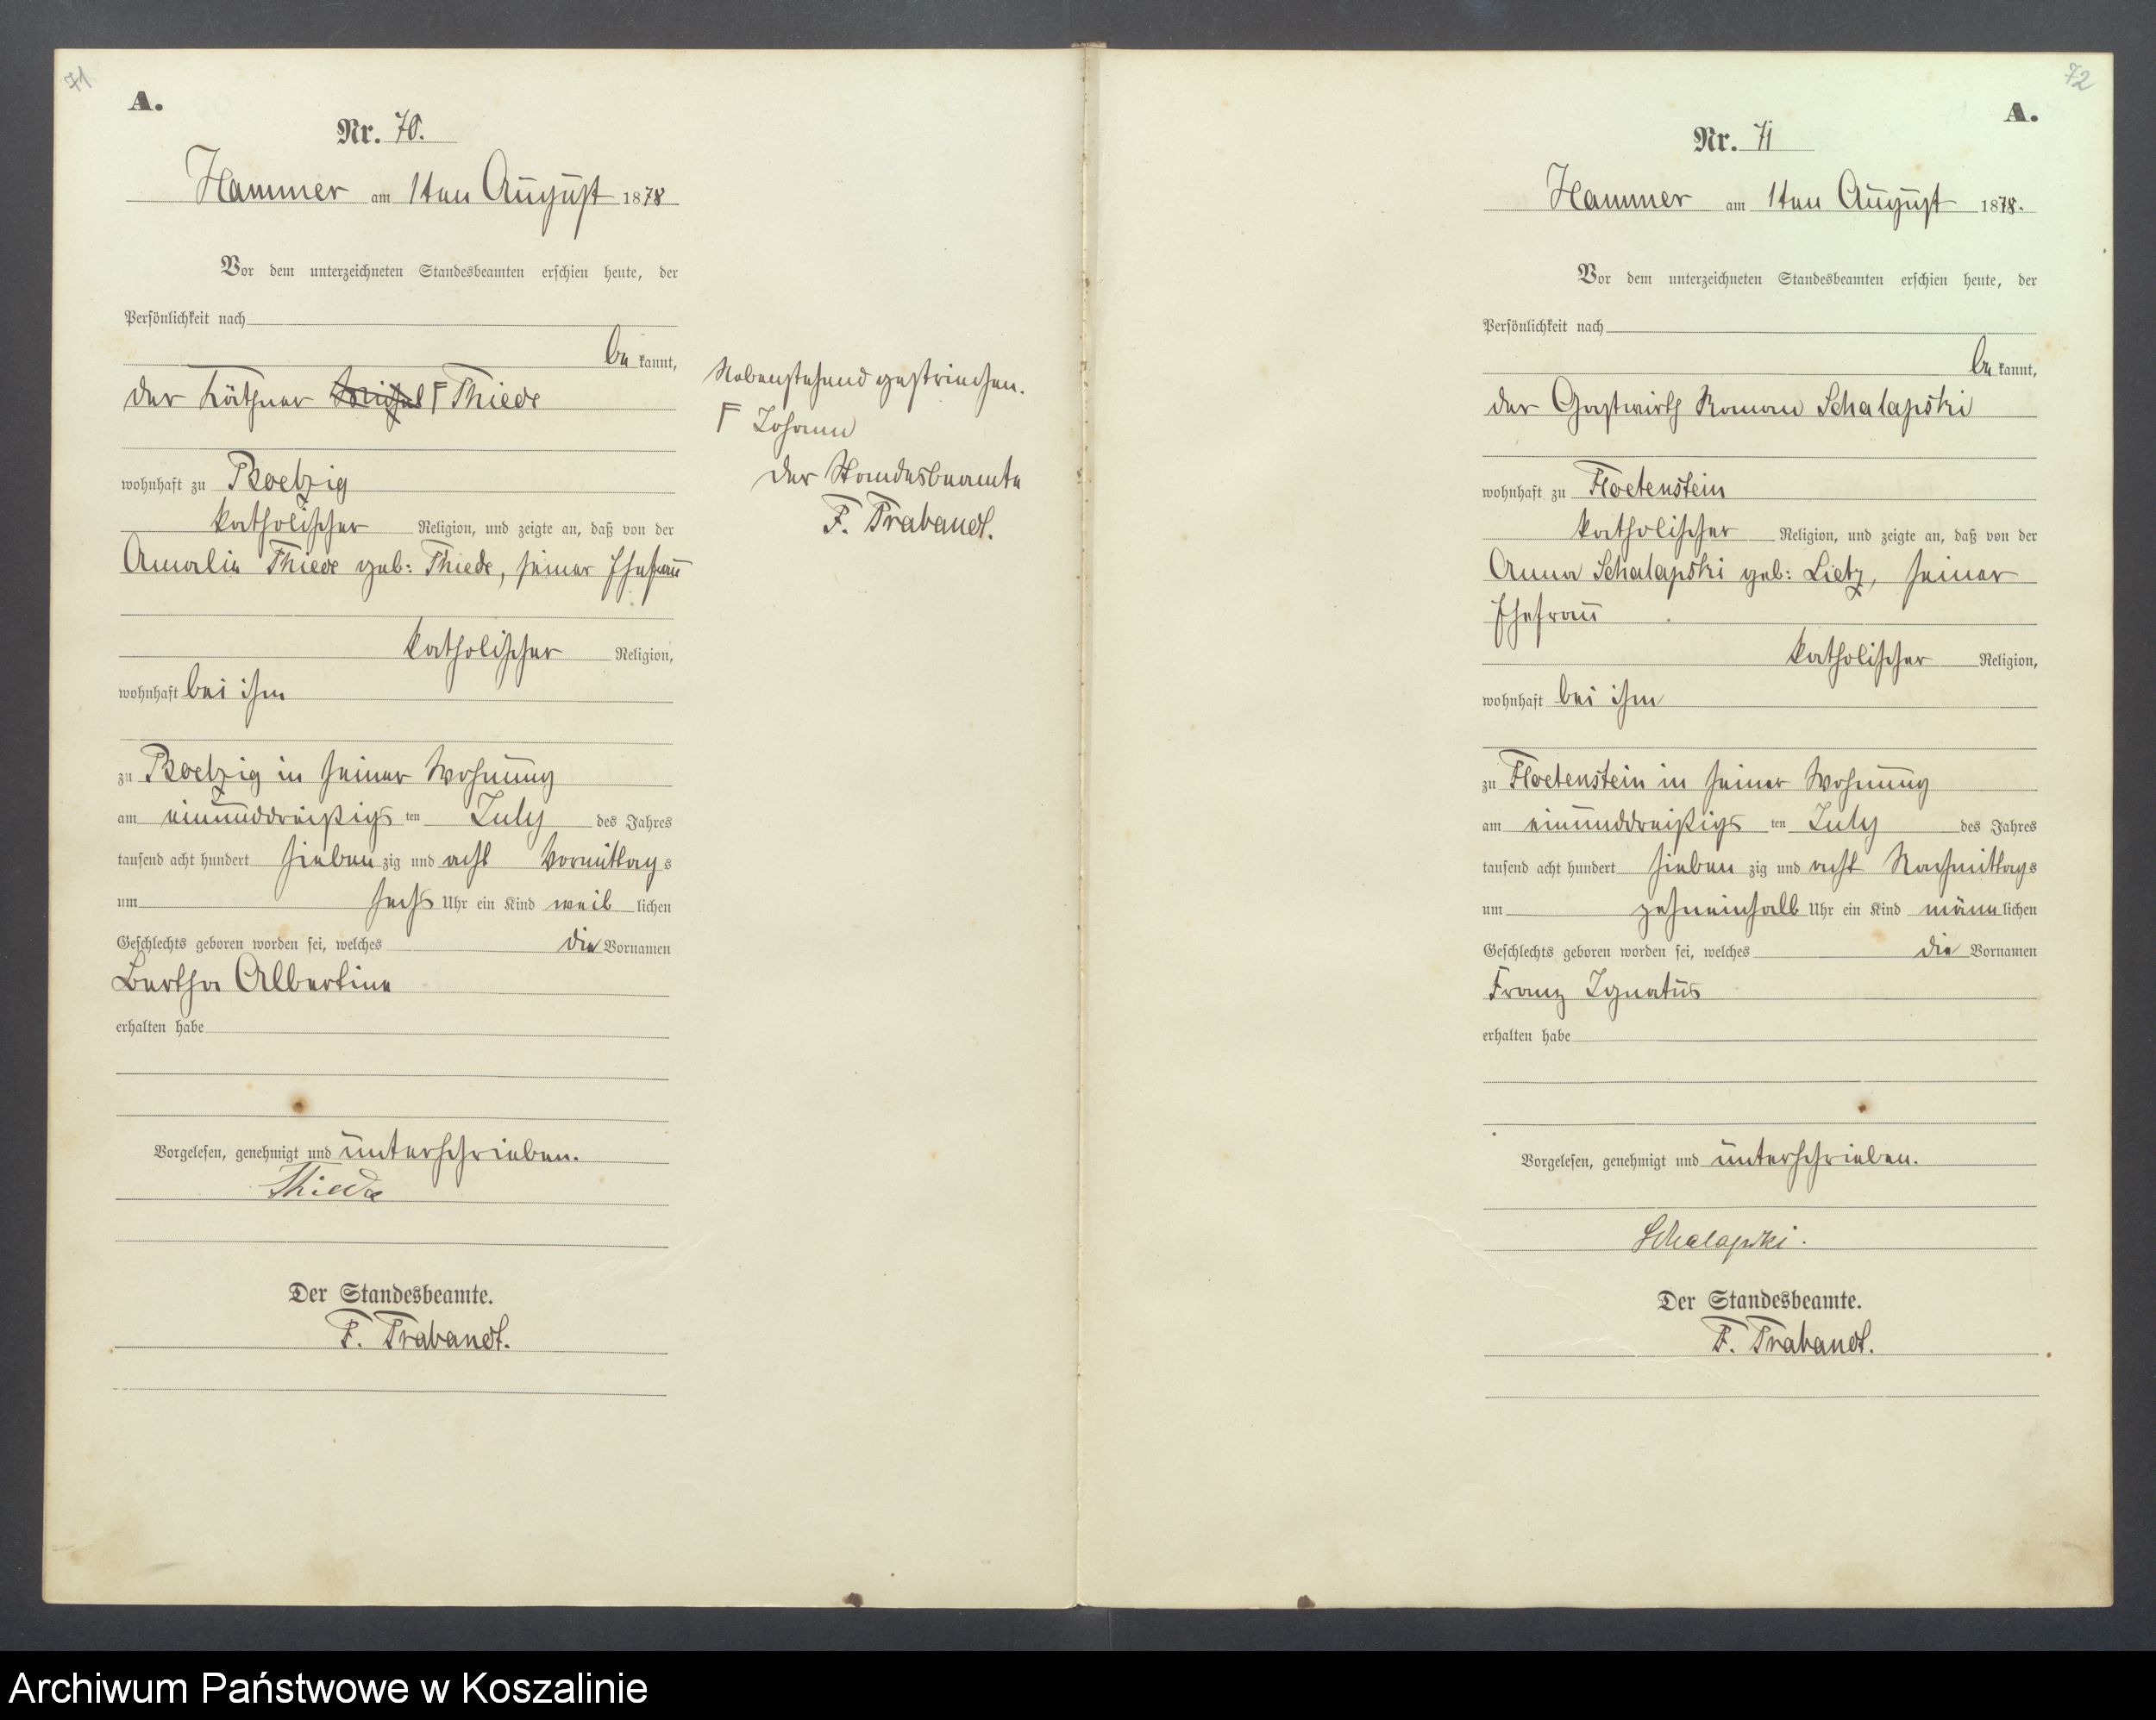 71
A.
Nr. 70.
Hammer am 1ten August 1878
Vor dem unterzeichneten Standesbeamten erschien heute, der
Persönlichkeit nach
be kannt,
der Käthner Thiede
wohnhaft zu Poetzig
katholischer Religion, und zeigte an, daß von der
Amalie Thiede geb: Thiede, seiner Ehefrau
katholischer Religion,
wohnhaft bei ihm
zu Poetzig in seiner Wohnung
am einunddreißigs ten July des Jahres
tausend acht hundert sieben zig und acht Vormittag s
um sechs Uhr ein Kind weib lichen
Geschlechts geboren worden sei, welches die Vornamen
Bertha Albertine
erhalten habe
Vorgelesen, genehmigt und unterschrieben.
Thiede
Der Standesbeamte.
F. Trabandt.
Nebenstehend gestrichen.
Γ Johann
der Standesbeamte
F. Trabandt.
72
A.
Nr. 71
Hammer am 1ten August 1878.
Vor dem unterzeichneten Standesbeamten erschien heute, der
Persönlichkeit nach
be kannt,
der Gastwirth Roman Schalapski
wohnhaft zu Floetenstein
katholischer Religion, und zeigte an, daß von der
Anna Schalapski geb: Lietz, seiner
Ehefrau
katholischer Religion,
wohnhaft bei ihm
zu Floetenstein in seiner Wohnung
am einunddreißigs ten July des Jahres
tausend acht hundert sieben zig und acht Nachmittags
um zehneinhalb Uhr ein Kind männ lichen
Geschlechts geboren worden sei, welches die Vornamen
Franz Ignatus
erhalten habe
Vorgelesen, genehmigt und unterschrieben.
Schalapski.
Der Standesbeamte.
F. Trabandt.
Archiwum Państwowe w Koszalinie